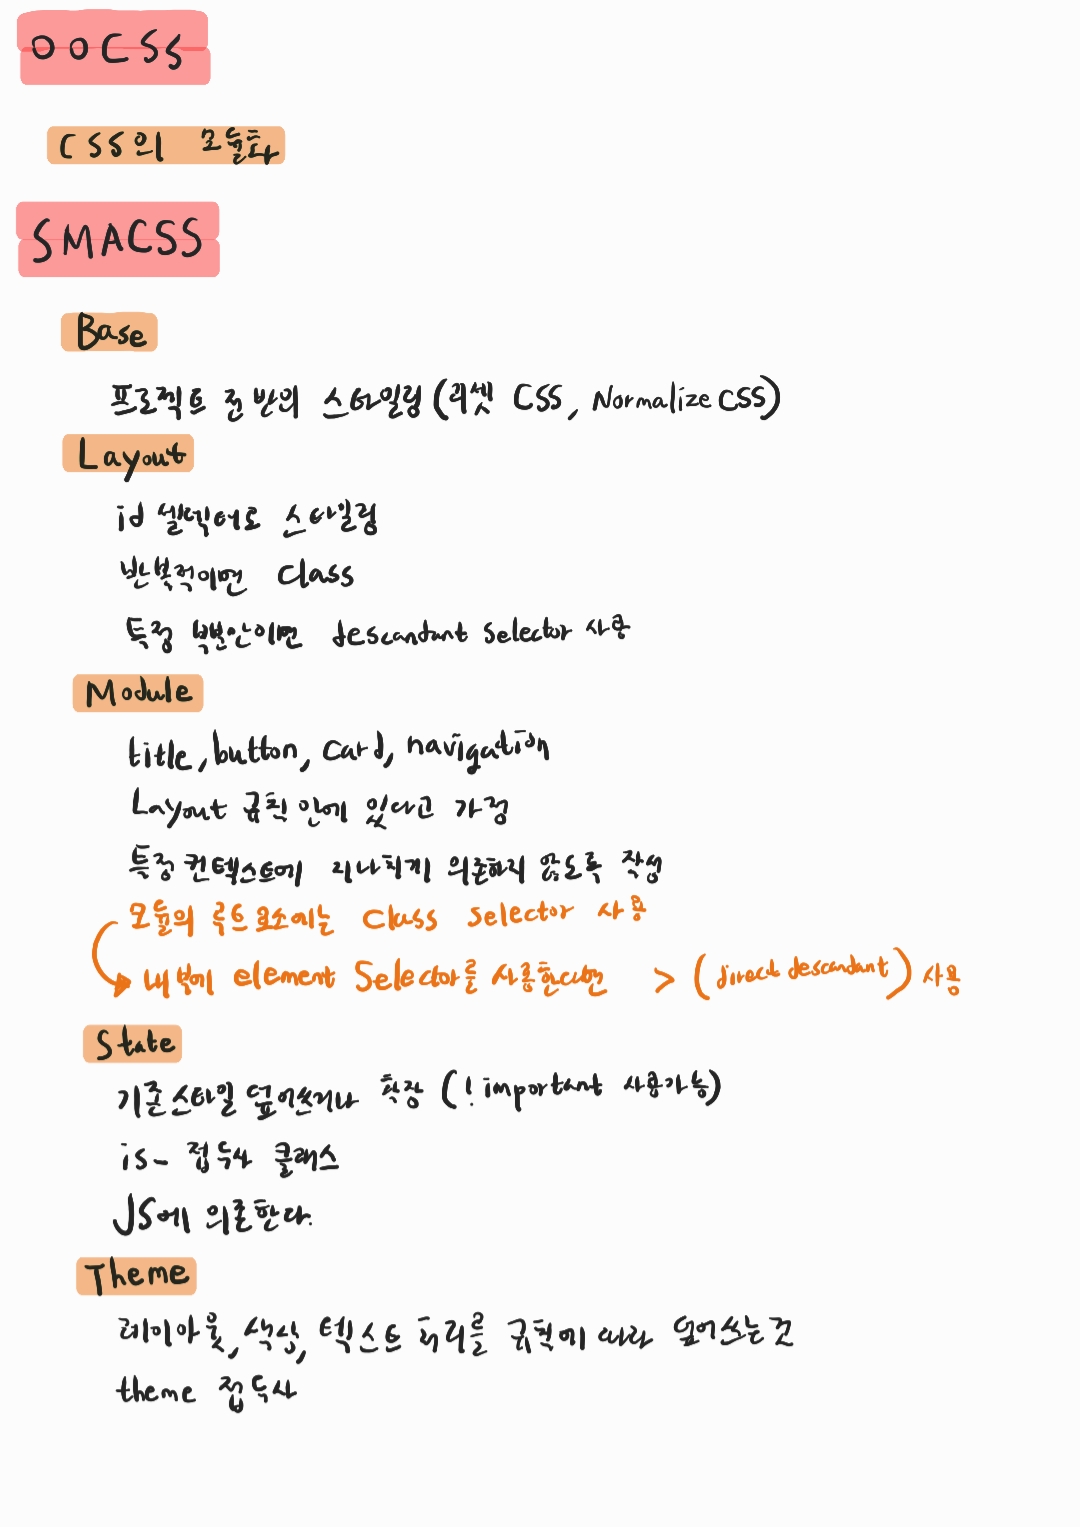 OOCSS
CSS의 모듈화
SMACSS
Base
프로젝트 전반의 스타일링 (리셋 CSS, Normalize CSS)
Layout
id 셀렉터로 스타일링
반복적이면 Class
특정 부분안이면 descandant selector 사용
Module
title, button, card, navigation
Layout 규칙 안에 있다고 가정
특정 컨텍스트에 지나치게 의존하지 않도록 작성
모듈의 루트 요소에는 Class selector 사용
내부에 element Selector를 사용한다면 > (direct descandant) 사용
State
기존 스타일 덮어쓰거나 확장 (!important 사용가능)
is- 접두사 클래스
JS에 의존한다.
Theme
레이아웃, 색상, 텍스트 처리를 규칙에 따라 덮어쓰는것
theme 접두사